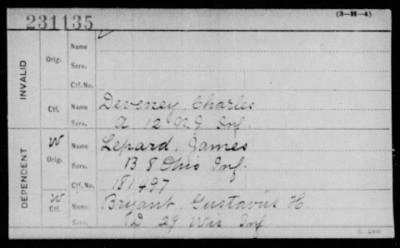 231135
(3-H-4)
INVALID
Orig.
Name
Serv.
Ctf. No.
Ctf.
Name Deveney, Charles
Serv. A 12 N.J. Inf.
DEPENDENT
W
Orig.
Name Lepard, James
Serv. B 8 Ohio Inf.
Ctf. No. 181497
W
Ctf.
Name Bryant, Gustavus H.
Serv. D 29 Wis Inf